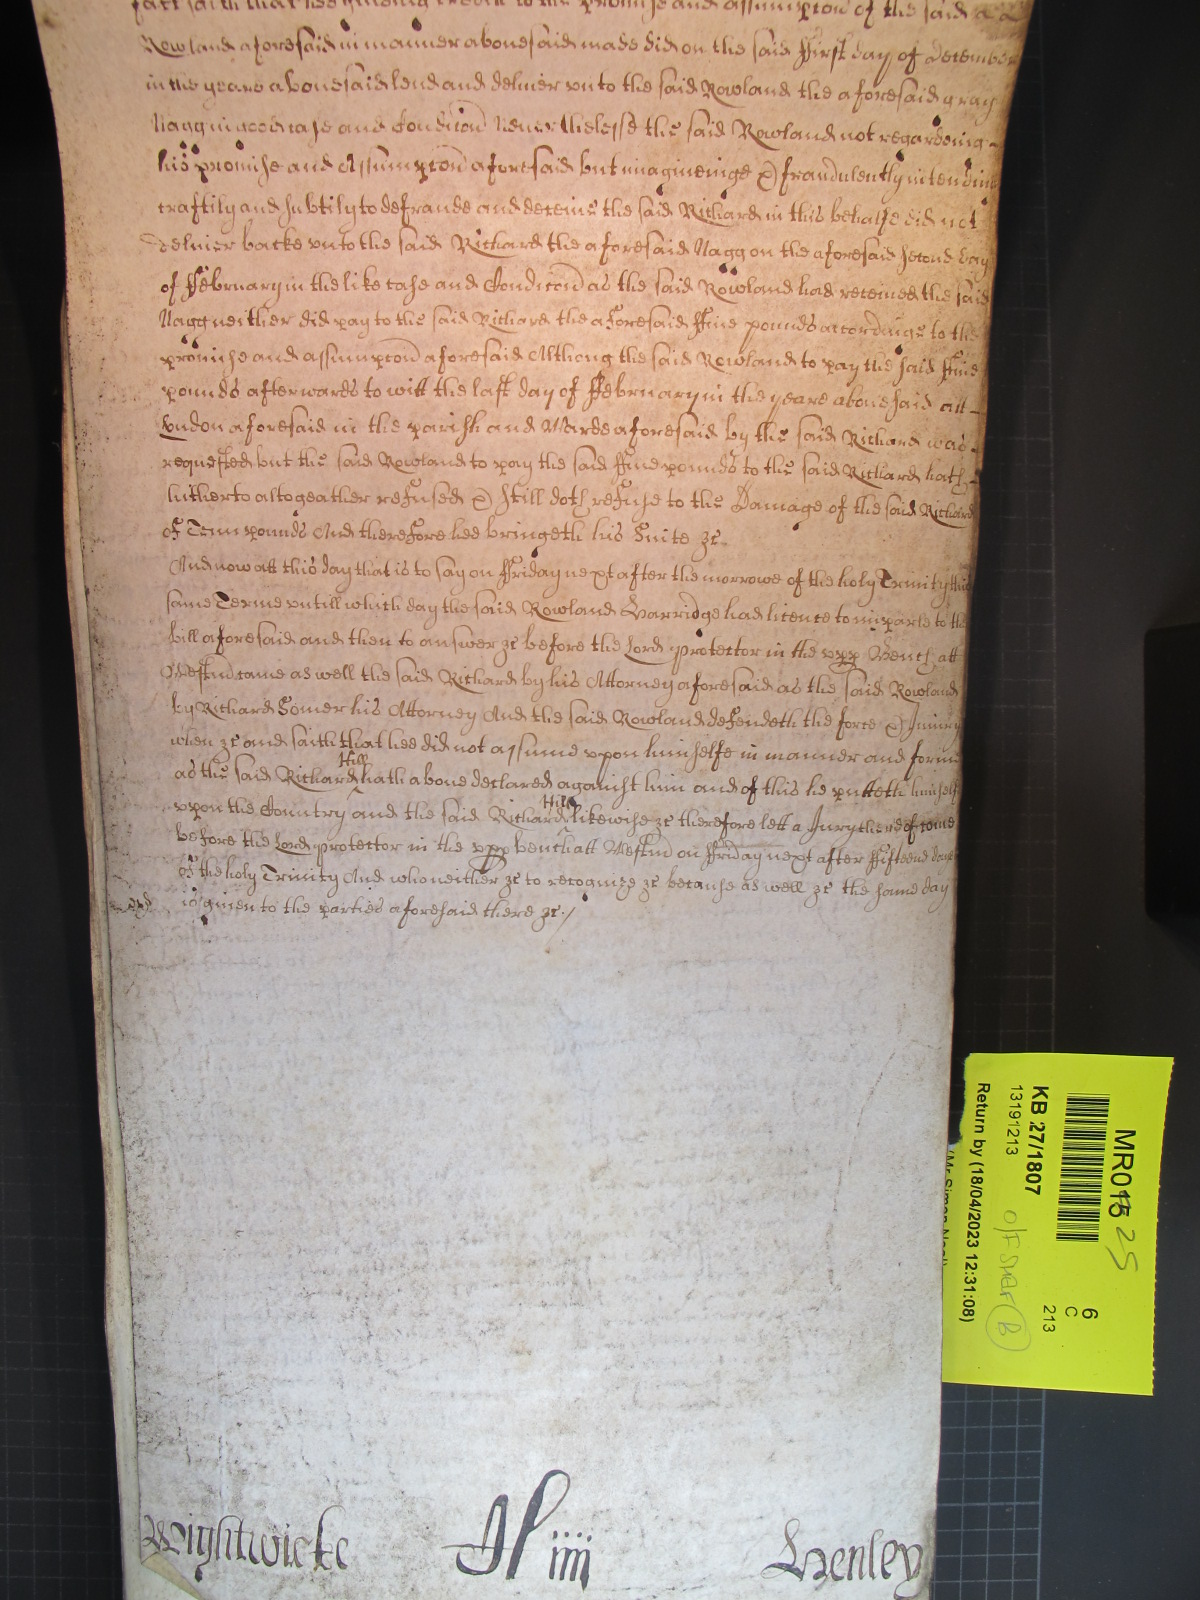 fact saith that hee giveing credit to the promise and assumpcon of the said
Rowland aforesaid in manner abovesaid made did on the said ffirst day of December
in the yeare abovesaid lend and deliver unto the said Rowland the aforesaid gray
Nagg in good case and Condicon Neverthelesse the said Rowland not regardeing
his promise and Assumpcon aforesaid but imagineinge & fraudulently intending
craftily and subtily to defraude and deceive the said Richard in this behalfe did not
deliver backe unto the said Richard the aforesaid Nagg on the aforesaid second day
of ffebruary in the like case and Condicon as the said Rowland had received the said
Nagg neither did pay to the said Richard the aforesaid ffive pounds accordinge to the
promise and assumpcon aforesaid Althoug the said Rowland to pay the said ffive
pounds afterwards to witt the last day of ffebruary in the yeare abovesaid att
London aforesaid in the parish and Warde aforesaid by the said Richard was
requested but the said Rowland to pay the said ffive pounds to the said Richard hath
hitherto altogeather refused & still doth refuse to the Damage of the said Richard
of Tenn pounds And therefore hee bringeth his Suite &c
And now att this day that is to say on ffriday next after the morrowe of the holy Trinity this
same Terme untill which day the said Rowland Garridge had licence to imparle to the
bill aforesaid and then to answer &c before the Lord protector in the upp Bench att
Westmd came as well the said Richard by his Attorney aforesaid as the said Rowland
by Richard Somer his Attorney And the said Rowland defendeth the force & Iniury
when &c and saith that hee did not assume uppon himselfe in manner and forme
as the said Richard Hill hath above declared against him and of this he putteth himself
upon the Country and the said Richard Hill likewise &c therefore lett a Iury thereof come
before the Lord protector in the upp bench att Westmd on ffriday next after ffifteene dayes
of the holy Trinity And who neither &c to recognize &c because as well &c the same day
is given to the parties aforesaid there &c
Wightwicke
iiii
Henley
MR01525
6
C
213
KB 27/1807
13191213
O/F SHELF B
Return by (18/04/2023 12:31:08)